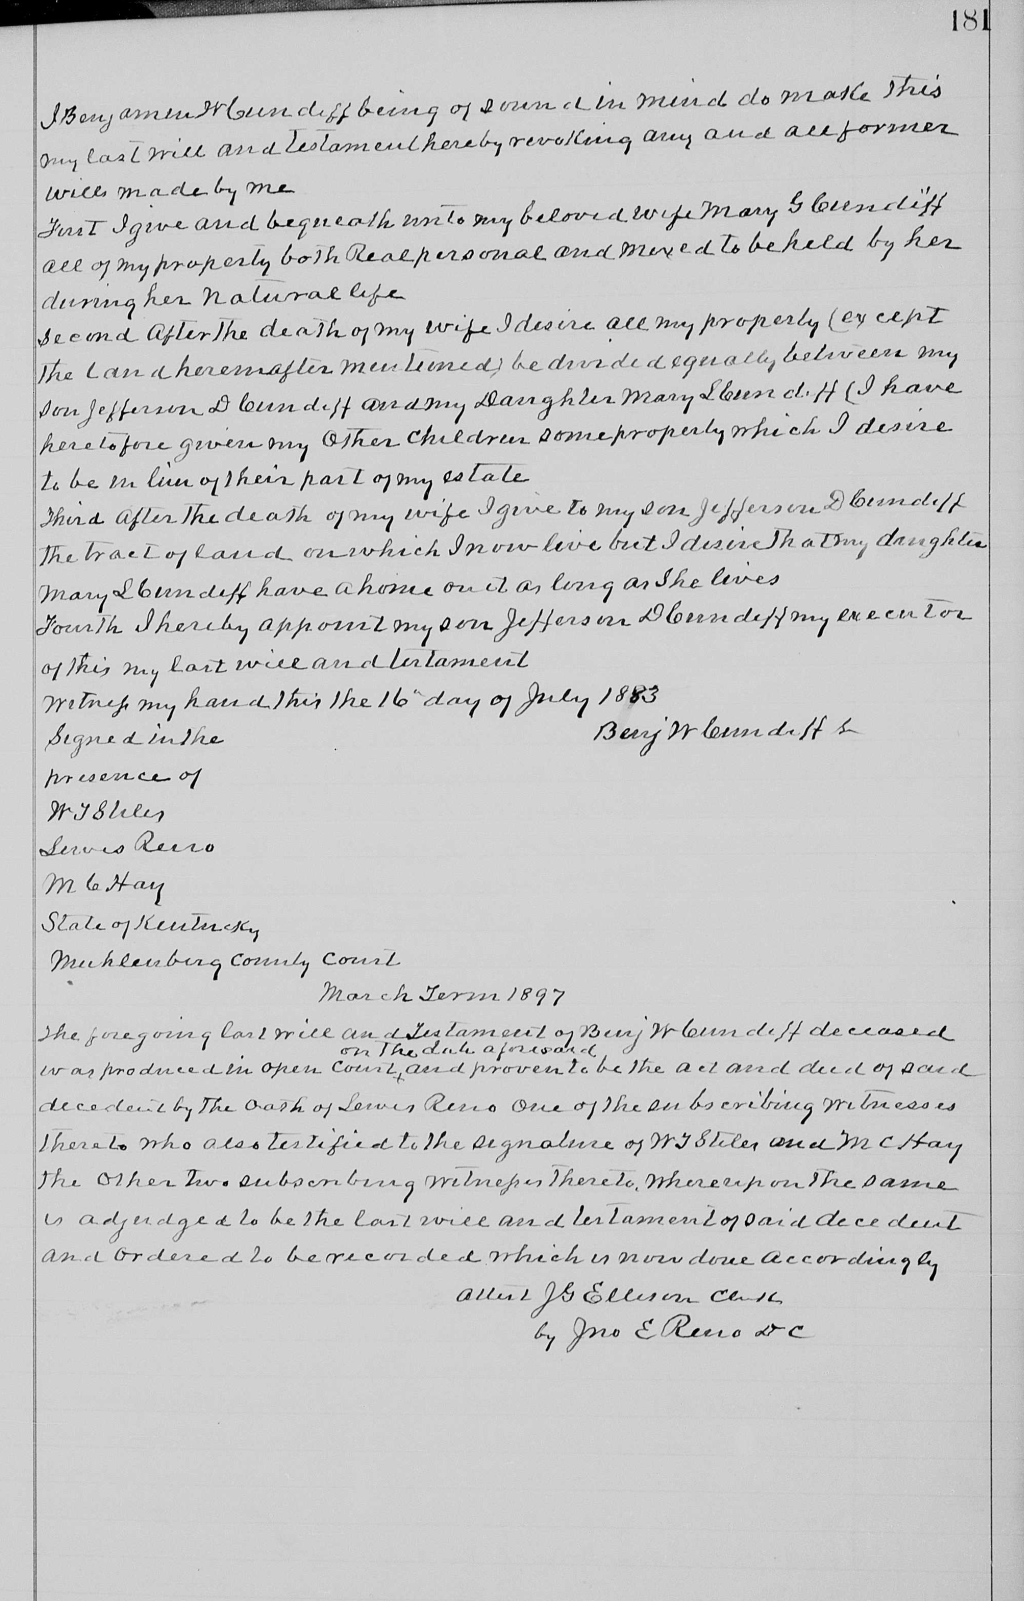 181
I Benjamen W Cundiff being of sound in mind do make this
my last will and testament hereby revoking any and all former
wills made by me
First I give and bequeath unto my beloved wife Mary G Cundiff
all of my property both Real personal and mixed to be held by her
during her natural life
Second After the death of my wife I desire all my property (except
the land hereinafter mentioned) be divided equally between my
son Jefferson D Cundiff and my Daughter Mary L Cundiff (I have
heretofore given my other children some property which I desire
to be in lieu of their part of my estate
Third After the death of my wife I give to my son Jefferson D Cundiff
the tract of land on which I now live but I desire that my daughter
Mary L Cundiff have a home on it as long as she lives
Fourth I hereby appoint my son Jefferson D Cundiff my executor
of this my last will and testament
Witness my hand this the 16" day of July 1883
Signed in the Benj W Cundiff
presence of
W T Stiles
Lewis Reno
M C Hay
State of Kentucky
Muhlenberg County Court
March Term 1897
The foregoing last will and Testament of Benj W Cundiff deceased
on the date aforesaid
was produced in open court, and proven to be the act and deed of said
decedent by the oath of Lewis Reno one of the subscribing witnesses
thereto who also testified to the signature of W T Stiles and M C Hay
the other two subscribing witnesses thereto, whereupon the same
is adjudged to be the last will and testament of said decedent
and ordered to be recorded which is now done accordingly
Attest J G Ellison Clerk
by Jno E Reno D C